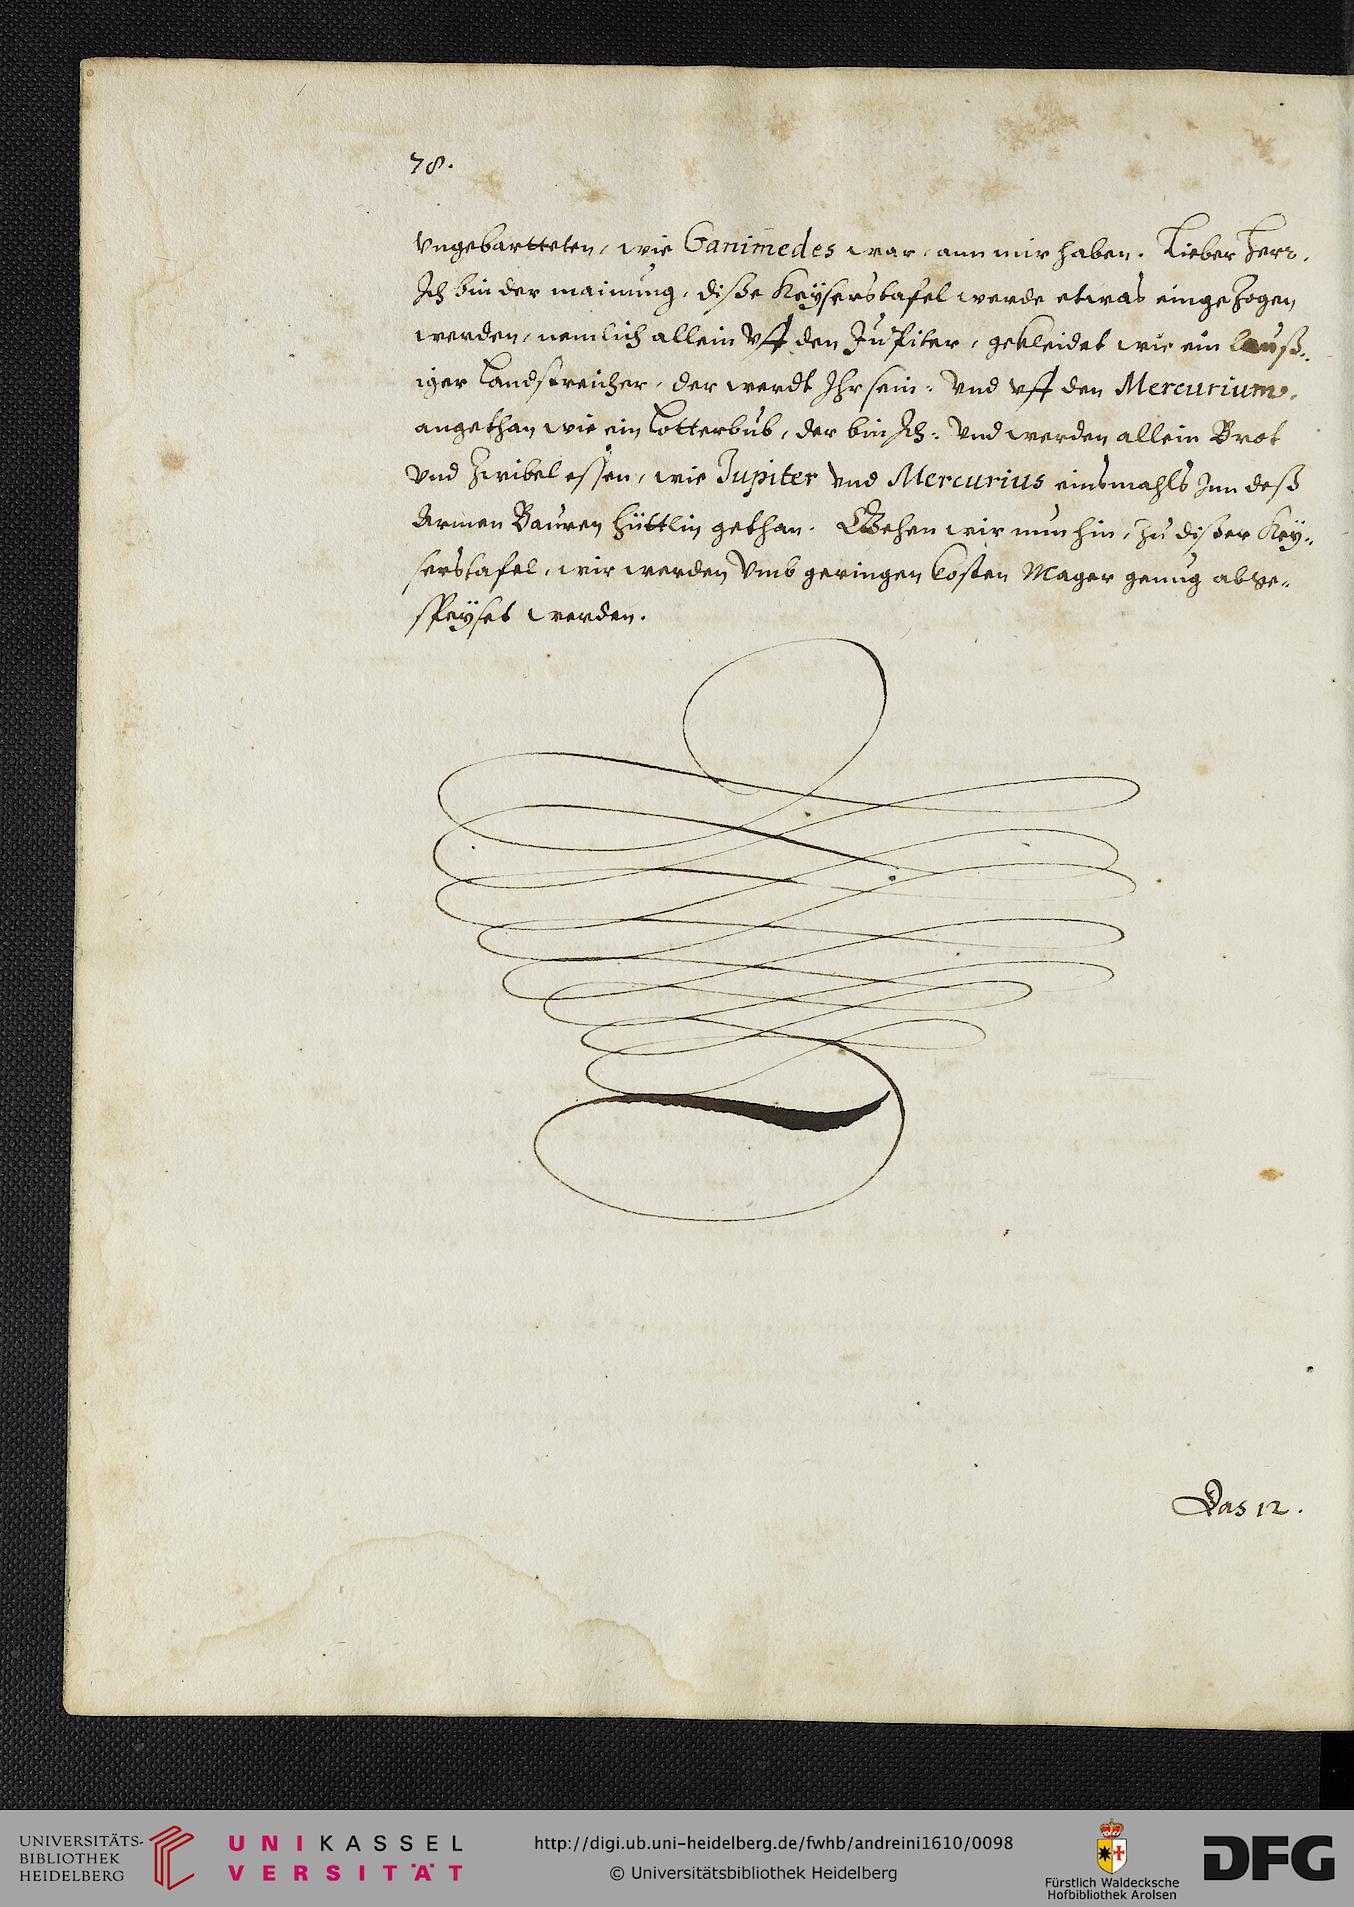 78.
vngebartteten, wie Ganimedes war, ann mir haben. Lieber Herr,
Ich bin der mainung, diße Keyserstafel werde etwas eingezogen
werden, nemlich allein vff den Jupiter, gekleidet wie ein lauß-
iger Landstreicher, der werdt Ihr sein: Vnd vff den Mercurium,
angethan wie ein Lotterbub, der bin Ich: Vnd werden allein Brot
vnd Zwibel essen, wie Jupiter vnd Mercurius einsmahls Inn deß
Armen Bauren Hüttlin gethan. Gehen wir nun hin, zu dißer Key-
serstafel, wir werden Vmb geringen Costen Mager genug abge-
speyset werden.
Das 12.
UNIVERSITÄTS-
BIBLIOTHEK
HEIDELBERG
UNIKASSEL
VERSITÄT
http://digi.ub.uni-heidelberg.de/fwhb/andreini1610/0098
© Universitätsbibliothek Heidelberg
Fürstlich Waldecksche
Hofbibliothek Arolsen
DFG